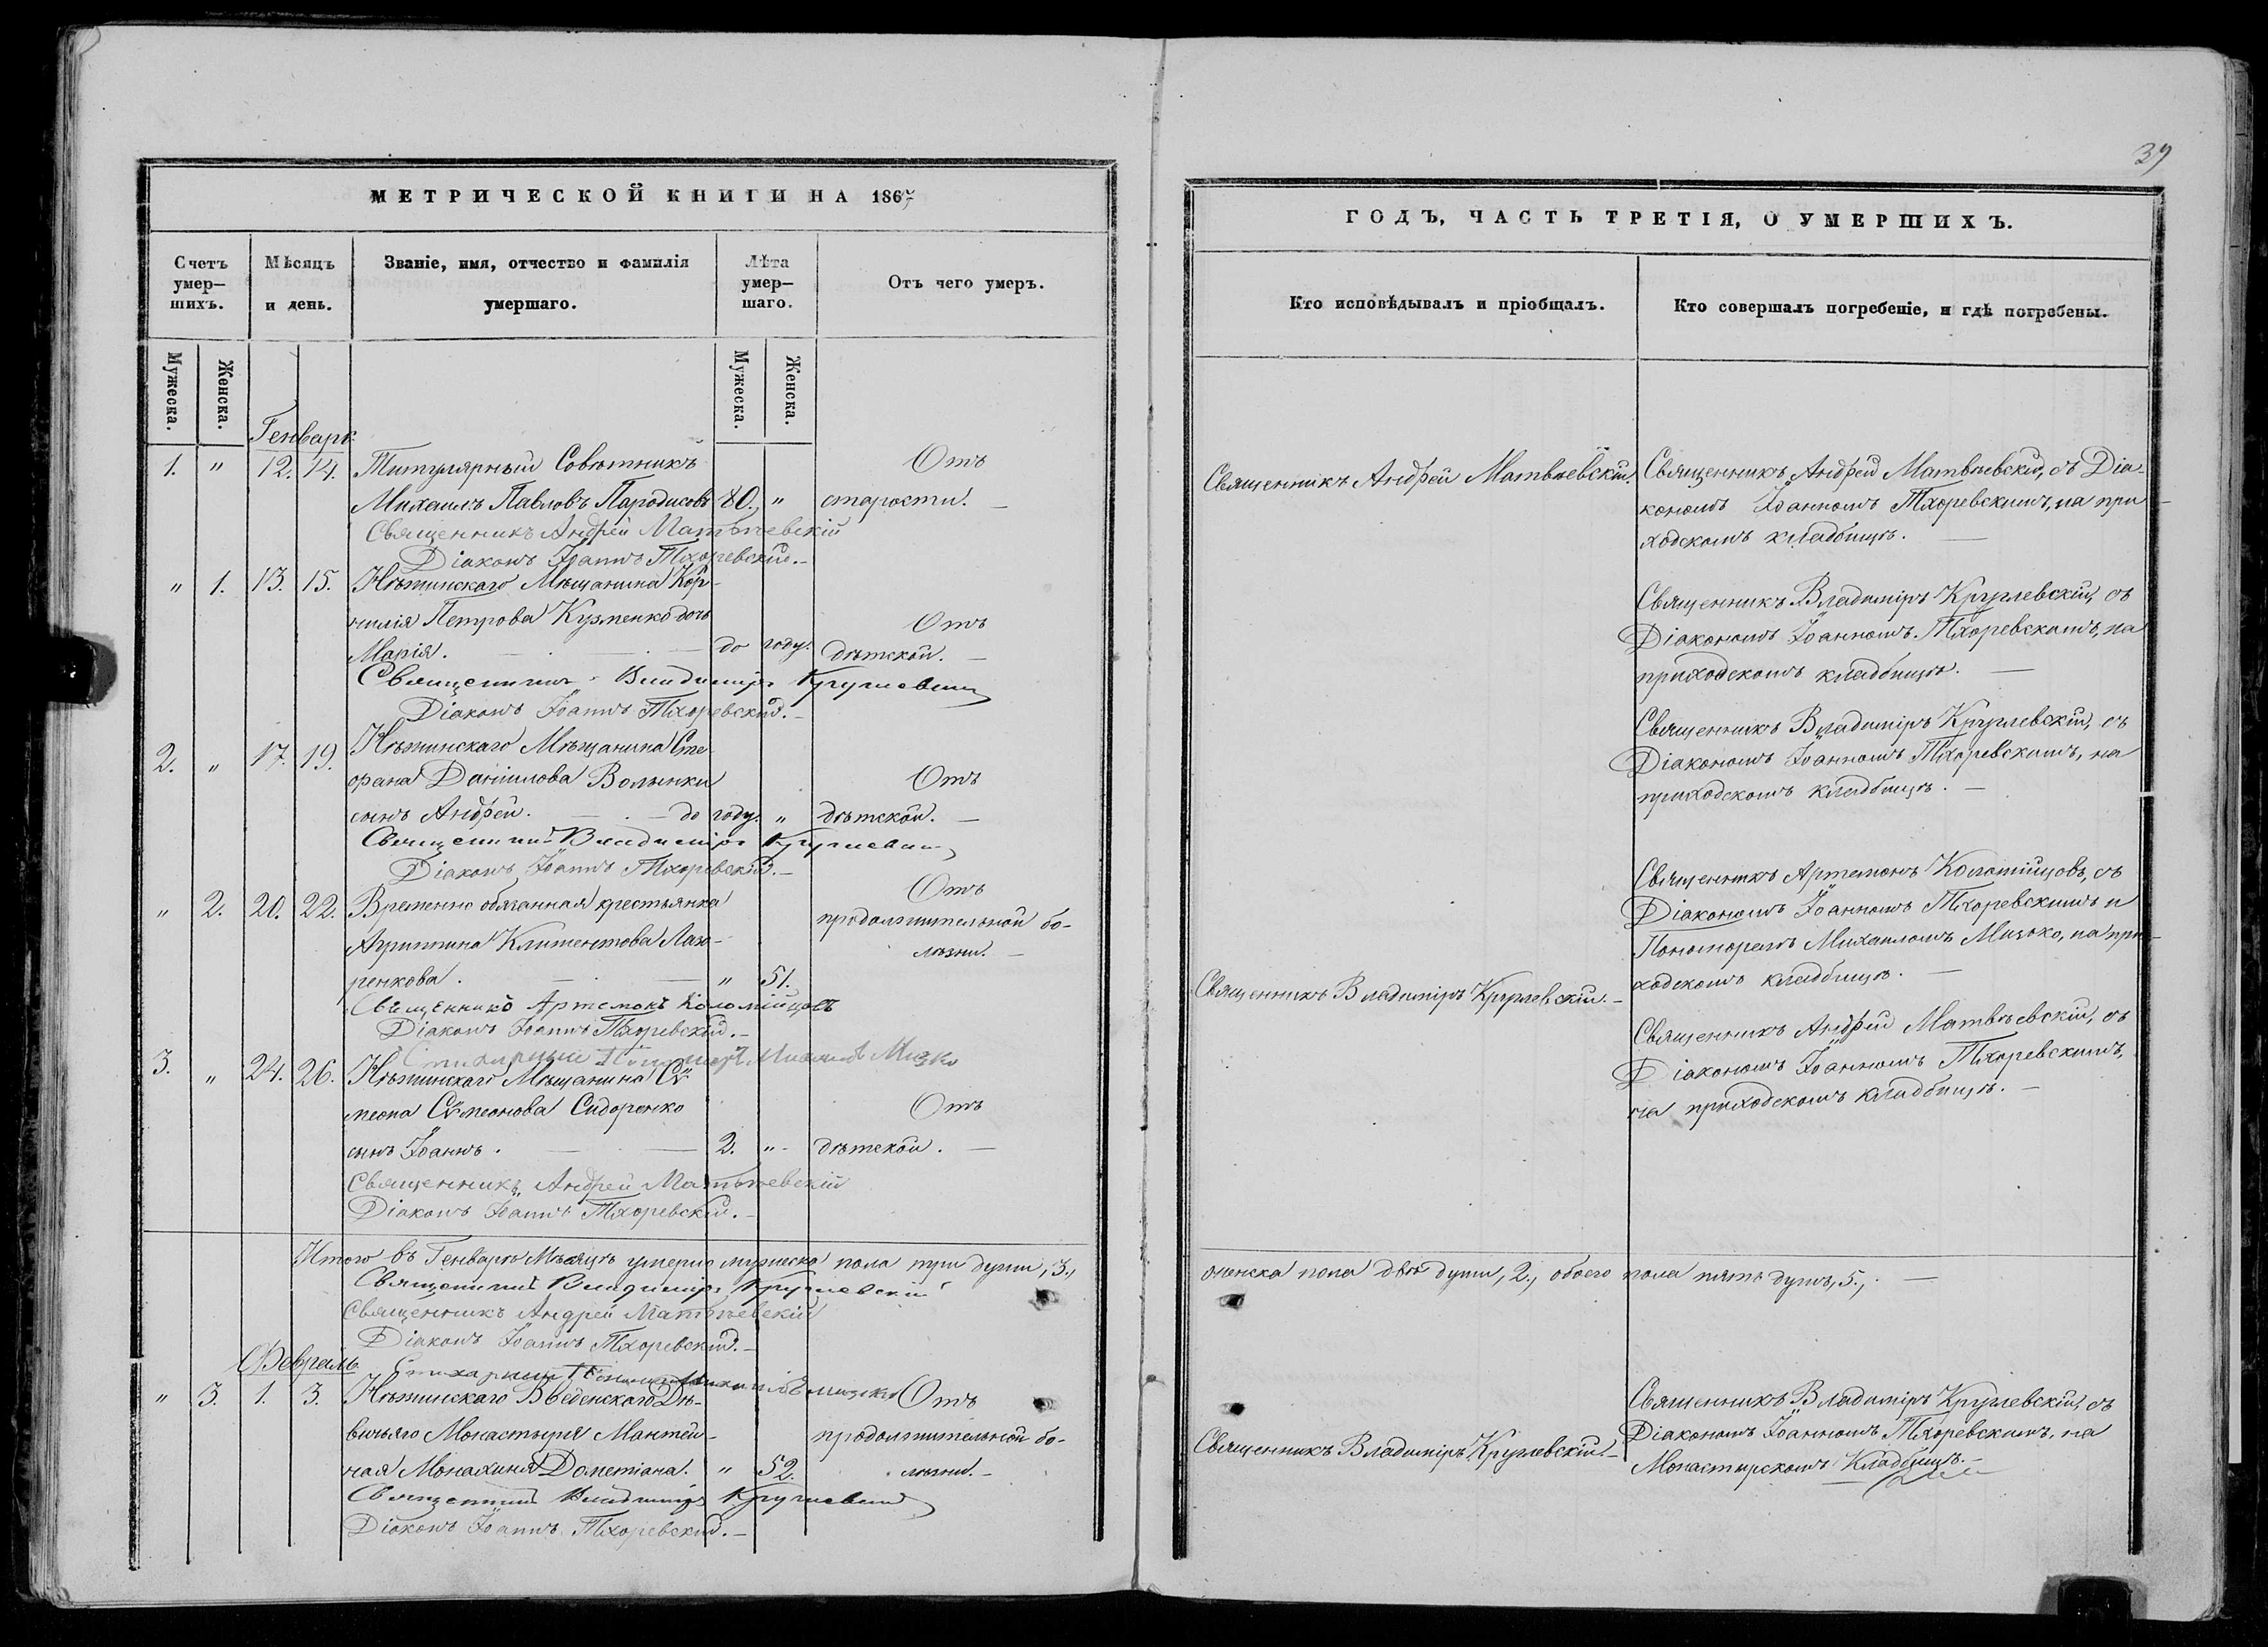 МЕТРИЧЕСКОЙ КНИГИ НА 1867
Счетъ умер-
шихъ.
Мѣсяцъ
и день.
Званіе, имя, отчество и фамилія
умершаго.
Лѣта
умер-
шаго.
Отъ чего умеръ.
Мужеска.
Женска.
Мужеска.
Женска.
Генварь
1. " 12. 14. Титулярный Совѣтникъ Отъ
Михаилъ Павловъ Пародисовъ 80. " старости.
Священникъ Андрей Матвѣевскій
Діаконъ Іоаннъ Тхоревскій.
" 1. 13. 15. Нѣжинскаго Мѣщанина Кор-
нилія Петрова Кузменко дочь Отъ
Марія. до году. дѣтской.
Священникъ Владиміръ Круглевскій
Діаконъ Іоаннъ Тхоревскій.
2. " 17. 19. Нѣжинскаго Мѣщанина Сте-
фана Даніилова Волынки Отъ
сынъ Андрей. до году. " дѣтской.
Священникъ Владиміръ Круглевскій
Діаконъ Іоаннъ Тхоревскій.
" 2. 20. 22. Временно обязанная крестьянка Отъ
Агриппина Климентова Лаза- продолжительной бо-
ренкова. " 51. лѣзни.
Священникъ Артемонъ Коломійцовъ
Діаконъ Іоаннъ Тхоревскій.
Стихарный Пономарь Михаилъ Мизко
3. " 24. 26. Нѣжинскаго Мѣщанина Сѵ-
меона Сѵмеонова Сидоренко Отъ
сынъ Іоаннъ. 2. " дѣтской.
Священникъ Андрей Матвѣевскій
Діаконъ Іоаннъ Тхоревскій.
Итого въ Генварѣ Мѣсяцѣ умерло мужеска пола три души, 3.,
Священникъ Владиміръ Круглевскій
Священникъ Андрей Матвѣевскій
Діаконъ Іоаннъ Тхоревскій.
Стихарный Пономарь Михаилъ Мизко
Февраль
" 3. 1. 3. Нѣжинскаго Введенскаго Дѣ- Отъ
вичьяго Монастыря Мантей- продолжительной бо-
ная Монахиня Дометіана. " 52. лѣзни.
Священникъ Владиміръ Круглевскій
Діаконъ Іоаннъ Тхоревскій.
39
ГОДЪ, ЧАСТЬ ТРЕТІЯ, О УМЕРШИХЪ.
Кто исповѣдывалъ и пріобщалъ.
Кто совершалъ погребеніе, и гдѣ погребены.
Священникъ Андрей Матвѣевскій.
Священникъ Андрей Матвѣевскій, съ Діа-
кономъ Іоанномъ Тхоревскимъ, на при
ходскомъ кладбищѣ.
Священникъ Владиміръ Круглевскій, съ
Діакономъ Іоанномъ Тхоревскимъ, на
приходскомъ кладбищѣ.
Священникъ Владиміръ Круглевскій, съ
Діакономъ Іоанномъ Тхоревскимъ, на
приходскомъ кладбищѣ.
Священникъ Владиміръ Круглевскій.
Священникъ Артемонъ Коломійцовъ, съ
Діакономъ Іоанномъ Тхоревскимъ и
Пономоремъ Михаиломъ Мизко, на при-
ходскомъ кладбищѣ.
Священникъ Андрей Матвѣевскій, съ
Діакономъ Іоанномъ Тхоревскимъ,
на приходскомъ кладбищѣ.
женска пола двѣ души, 2., обоего пола пять душъ, 5.,
Священникъ Владиміръ Круглевскій.
Священникъ Владиміръ Круглевскій, съ
Діакономъ Іоанномъ Тхоревскимъ, на
Монастырскомъ Кладбищѣ.